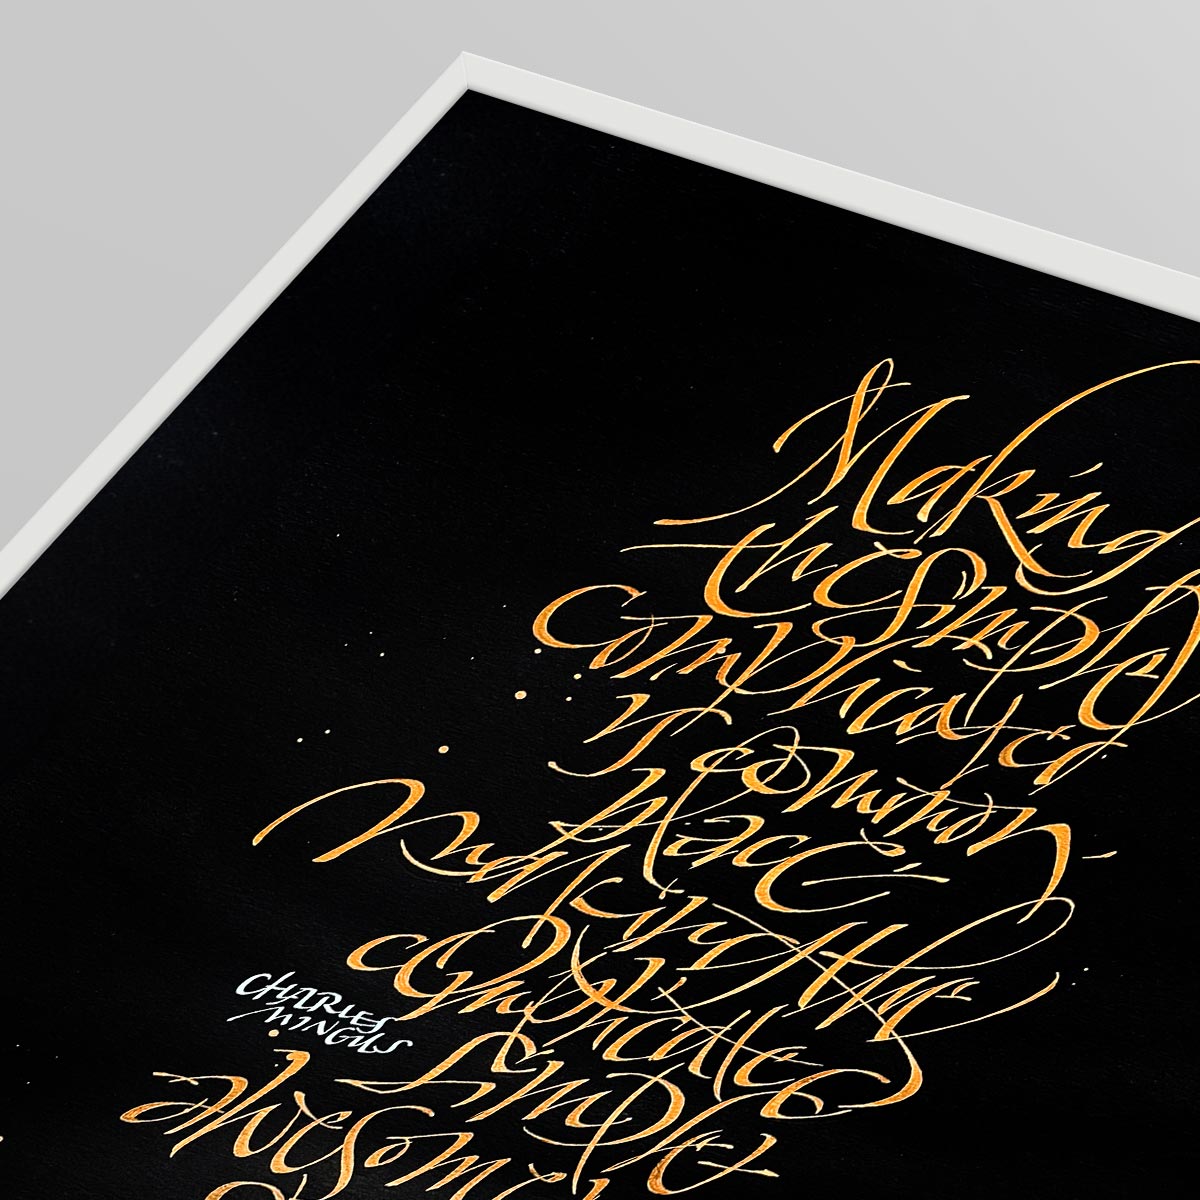 Making
the simple
Complicated
is common
place
making the
complicated
simple
awesomely
CHARLES
MINGUS